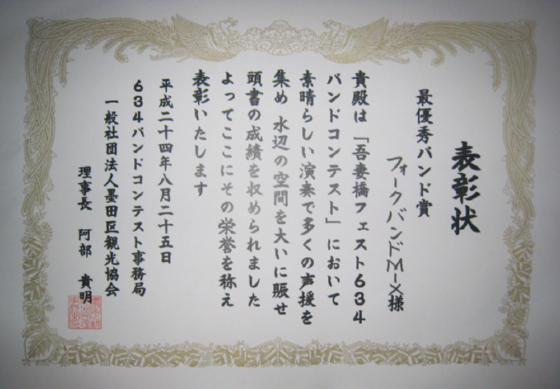 表彰状
最優秀バンド賞
フォークバンドMーX様
貴殿は「吾妻橋フェスト634
バンドコンテスト」において
素晴らしい演奏で多くの声援を
集め 水辺の空間を大いに賑せ
頭書の成績を収められました
よってここにその栄誉を称え
表彰いたします
平成二十四年八月二十五日
634バンドコンテスト事務局
一般社団法人墨田区観光協会
理事長 阿部 貴明